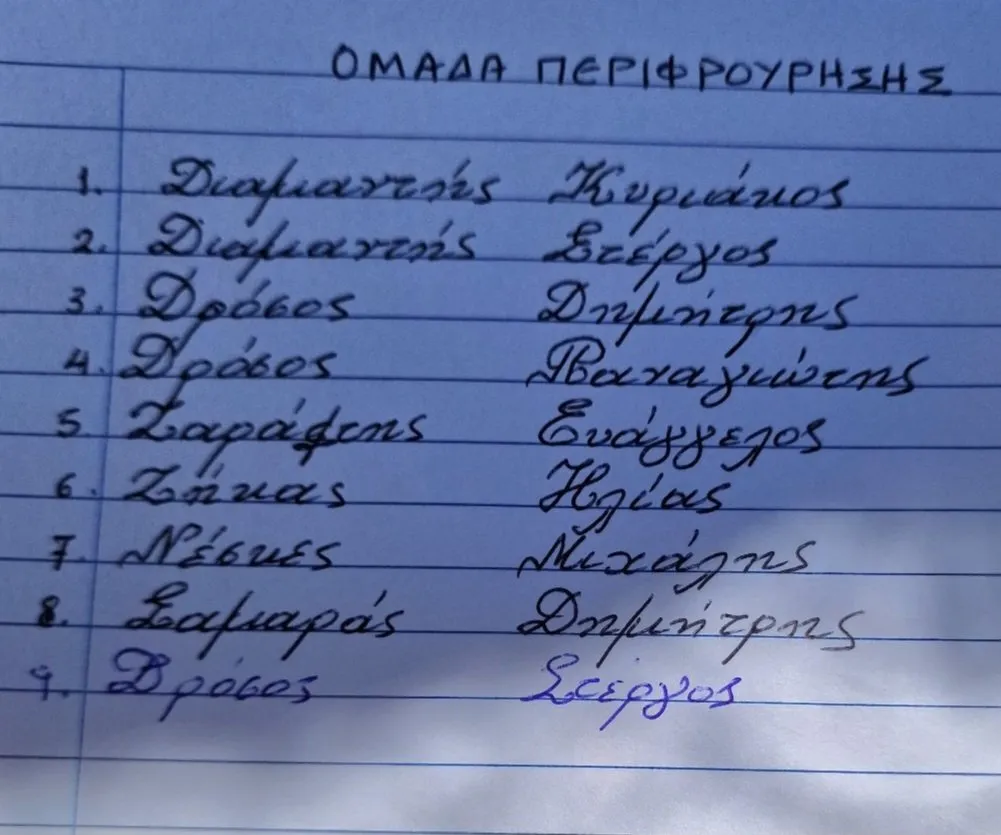 ΟΜΑΔΑ ΠΕΡΙΦΡΟΥΡΗΣΗΣ
1. Διαμαντής Κυριάκος
2. Διαμαντής Στέργος
3. Δρόσος Δημήτρης
4. Δρόσος Παναγιώτης
5. Ζαράφτης Ευάγγελος
6. Ζήκας Ηλίας
7. Νέσκες Μιχάλης
8. Σαμαράς Δημήτρης
9. Δρόσος Στέργος